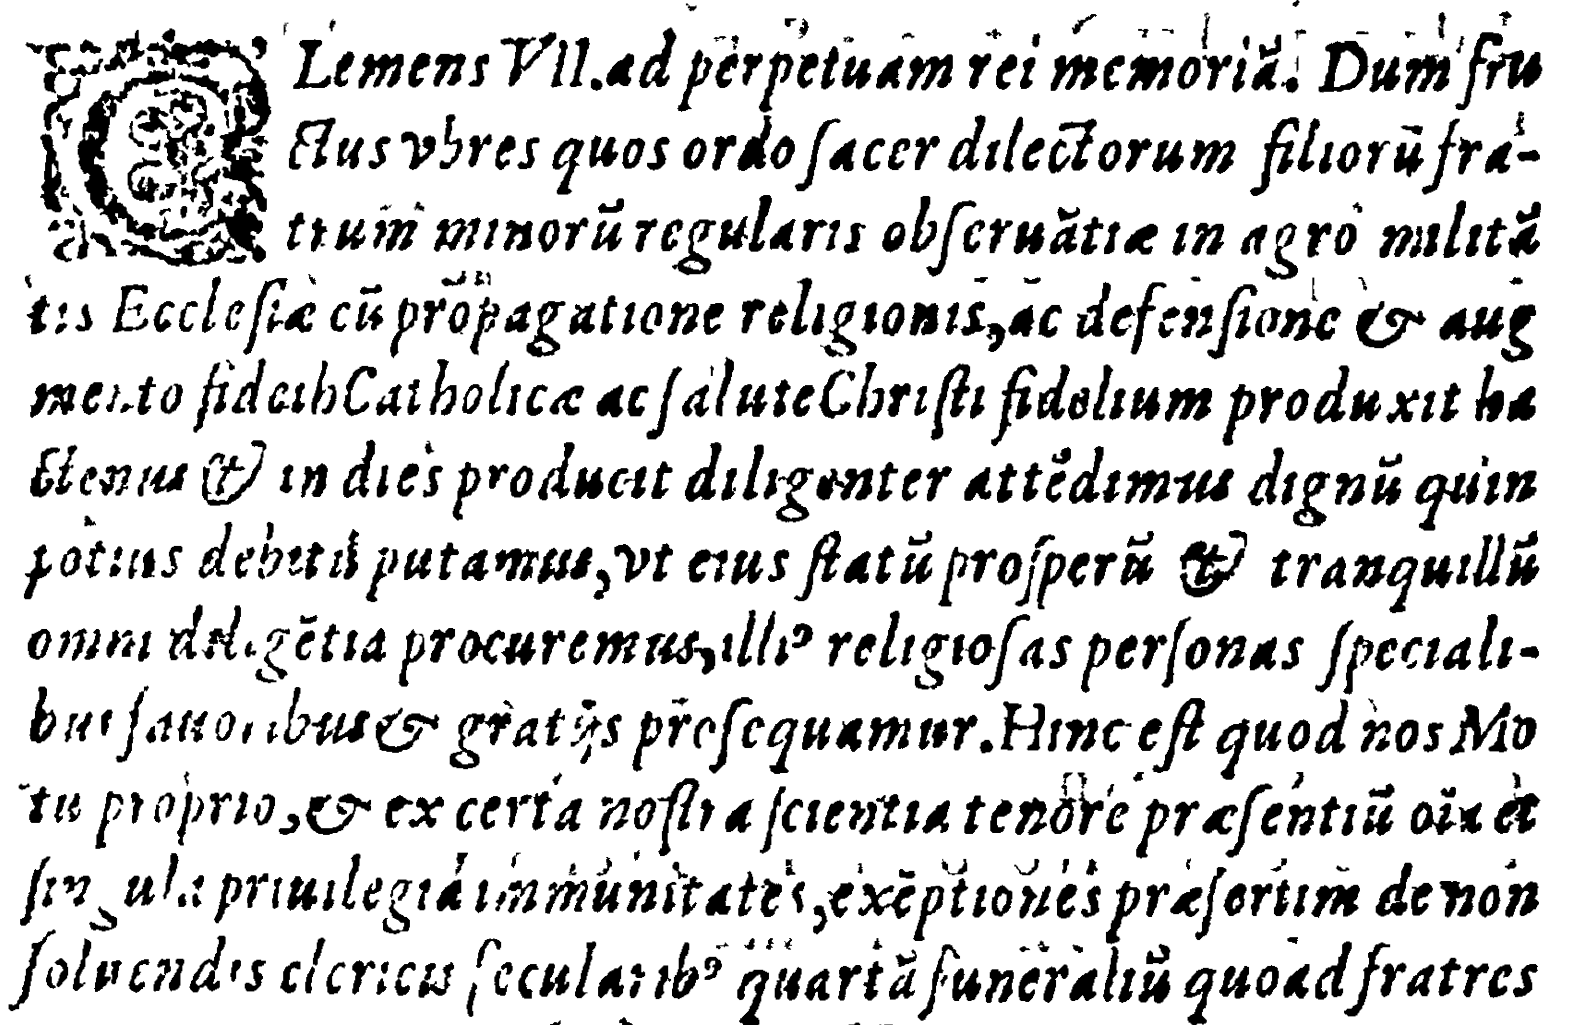 CLemens VII. ad perpetuam rei memoriã. Dum fru
ctus vbres quos ordo ſacer dilectorum filiorũ fra-
trum minorũ regularis obſeruãtiæ in agro militã
tis Eccleſiæ cũ prop̃agatione religionis, ac defenſione & aug
mento fidei Catholicæ ac ſalute Chriſti fidelium produxit ha
ctenus & in dies producit diligenter attẽdimus dignũ quin
potius debitũ putamus, vt eius ſtatũ proſperũ & tranquillũ
omni diligẽtia procuremus, illiꝰ religioſas perſonas ſpeciali-
bus fauoribus & gratijs proſequamur. Hinc eſt quod nos Mo
tu proprio, & ex certa noſtra ſcientia tenore præſentiũ oĩa et
ſingula priuilegia immunitates, exẽptiones præſertim de non
ſoluendis clericis ſecularibꝰ quartã funeraliũ quoad fratres